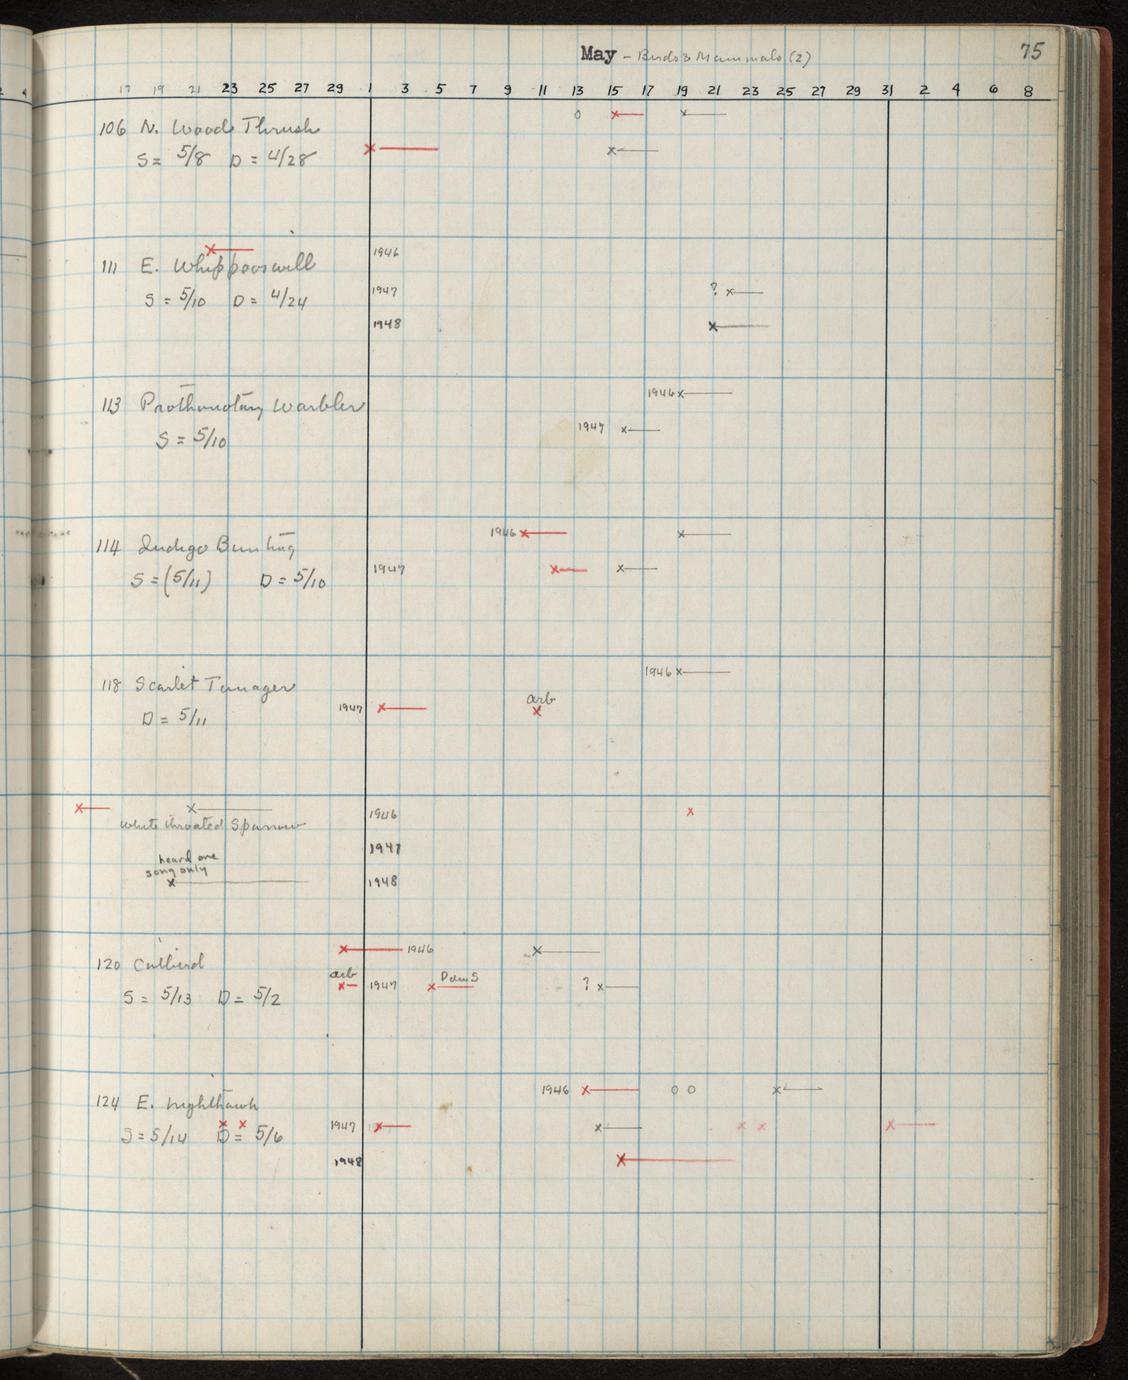 May - Birds & Mammals (2) 75
17 19 21 23 25 27 29 1 3 5 7 9 11 13 15 17 19 21 23 25 27 29 31 2 4 6 8
106 N. Wood Thrush
S = 5/8 D = 4/28
1946
111 E. Whippoorwill
1947 ?
S = 5/10 D = 4/24
1948
1946
113 Prothonotary Warbler
1947
S = 5/10
1946
114 Indigo Bunting
1947
S = (5/11) D = 5/10
1946
118 Scarlet Tanager
arb
1947
D = 5/11
1946
White throated Sparrow
1947
heard one
song only
1948
1946
120 Catbird
arb 1947 ?
S = 5/13 D = 5/2
1946
124 E. Nighthawk
1947
S = 5/14 D = 5/6
1948